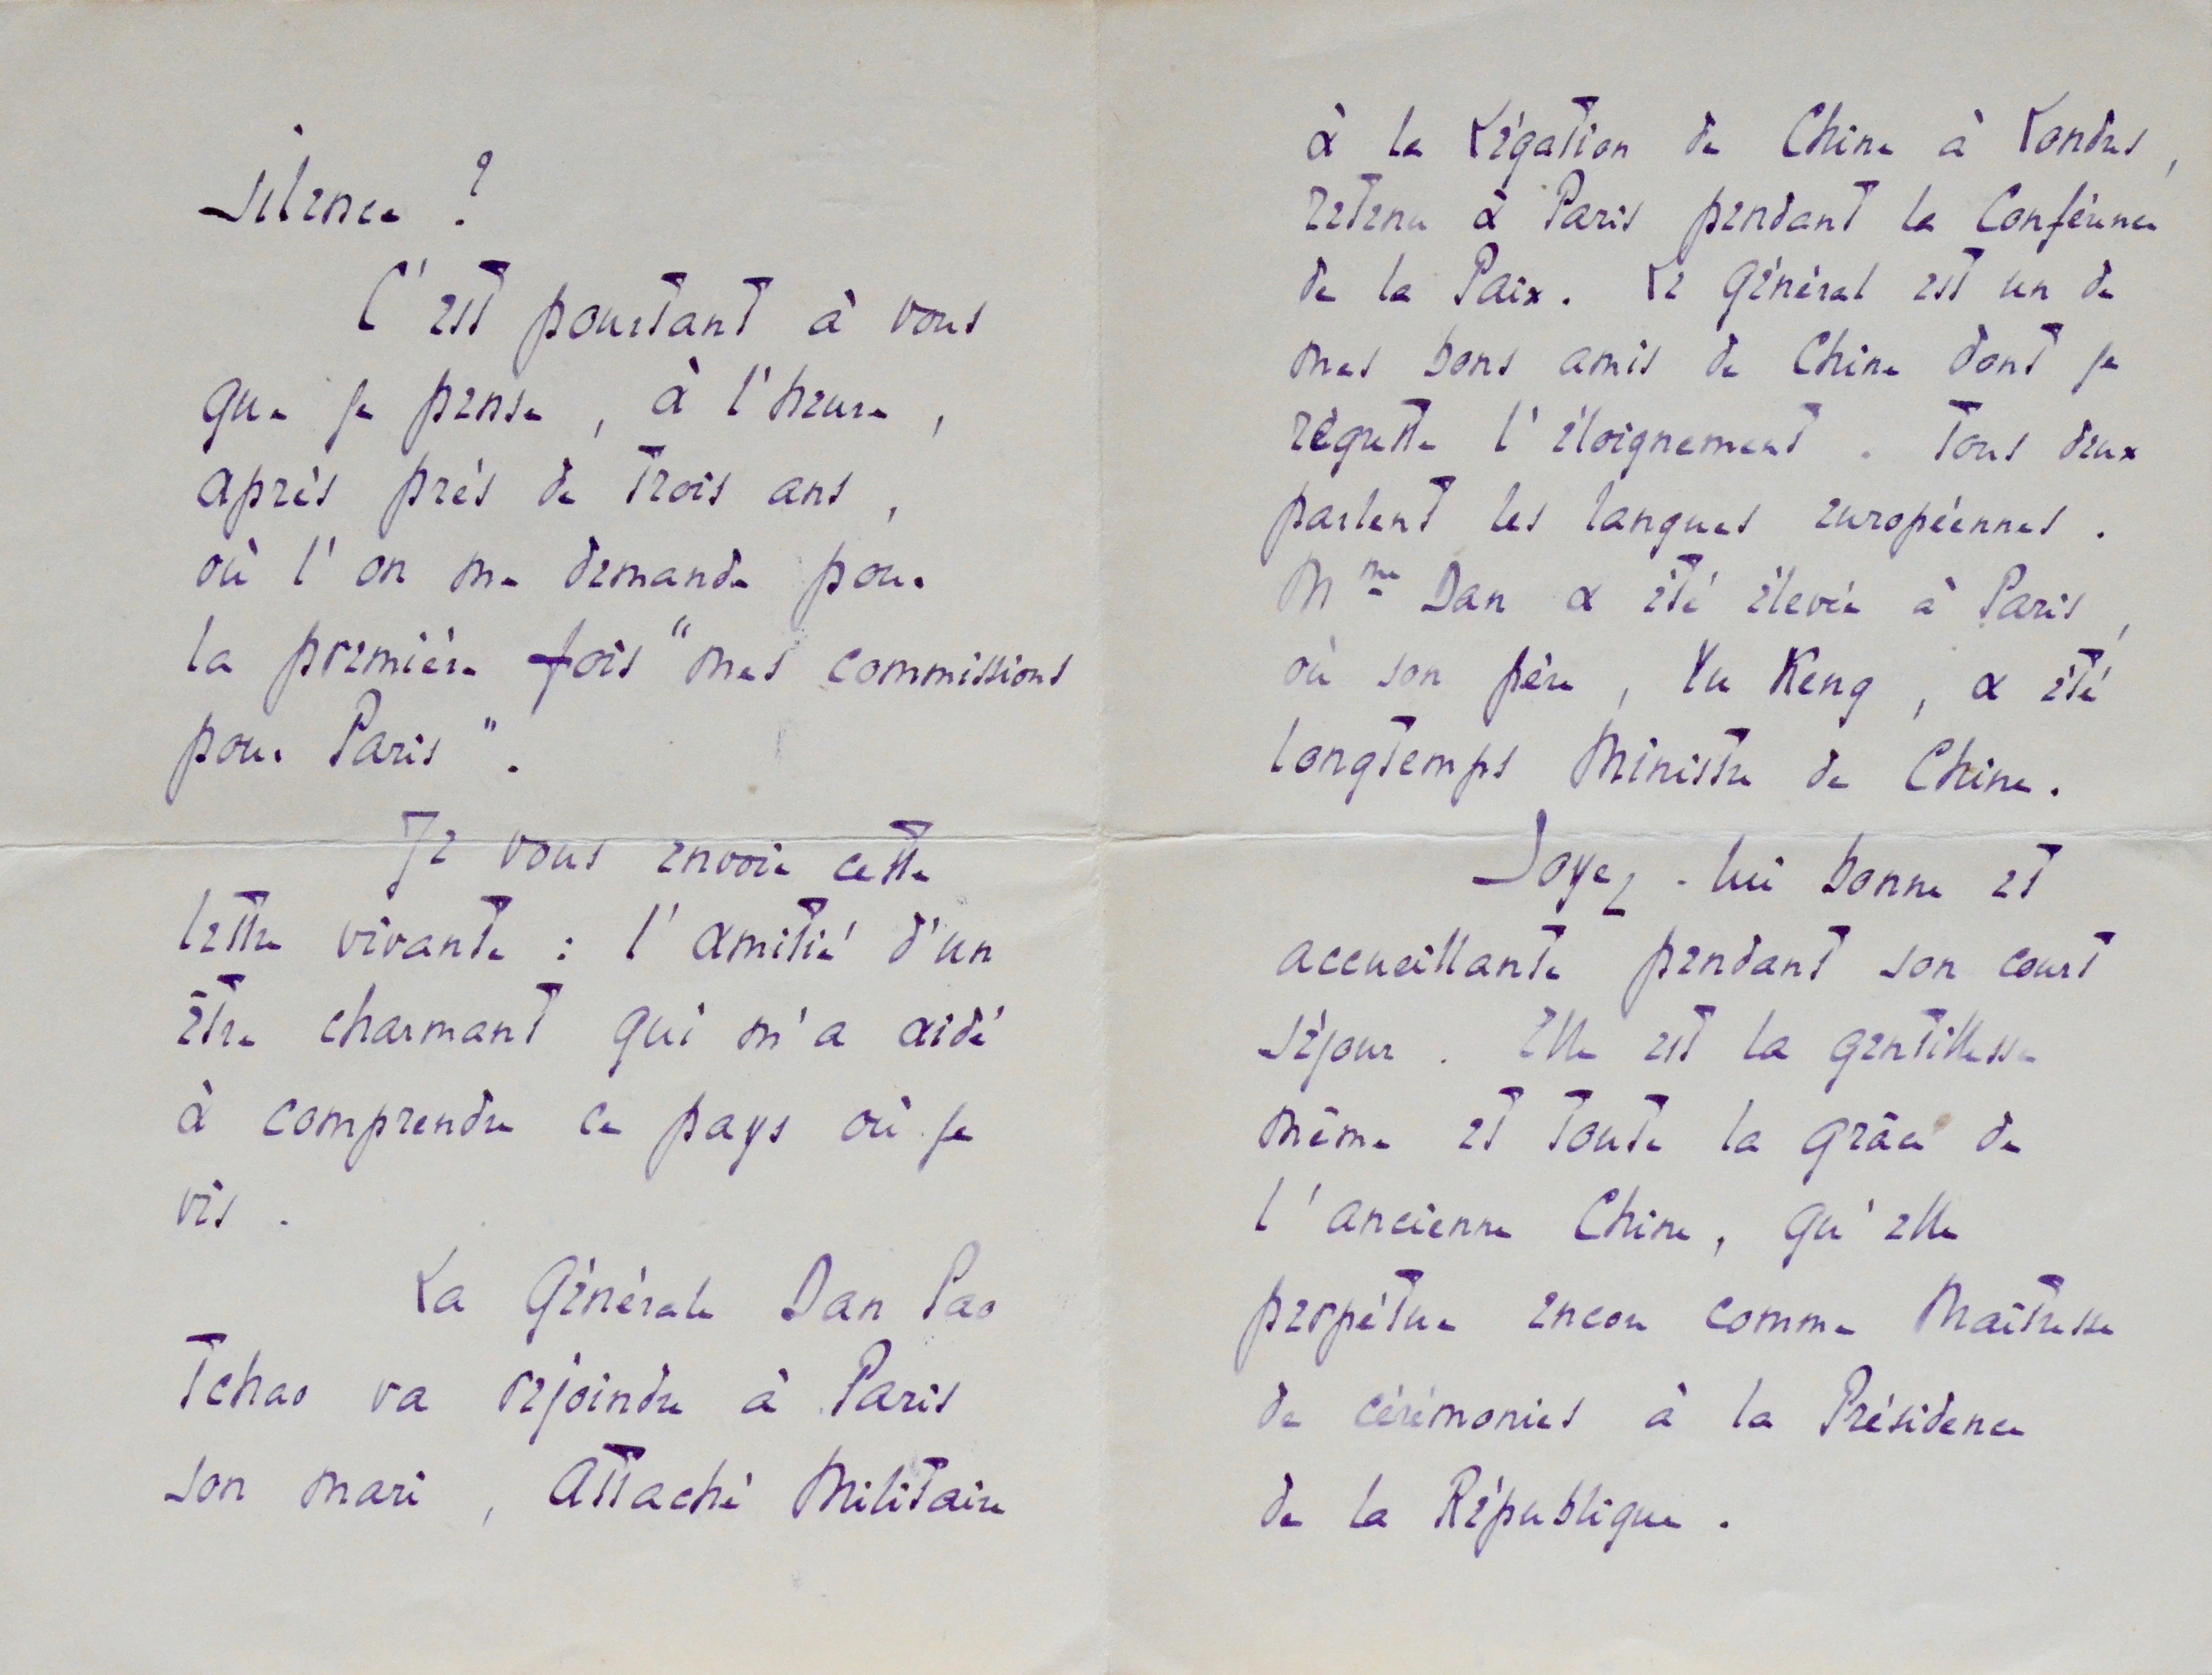 silence ?
C'est pourtant à vous
que je pense, à l'heure,
après près de trois ans,
où l'on me demande pour
la première fois "mes commissions
pour Paris".
Je vous envoie cette
lettre vivante : l'amitié d'un
être charmant qui m'a aidé
à comprendre ce pays où je
vis.
La Générale Dan Pao
Tchao va rejoindre à Paris
son mari, Attaché Militaire
à la Légation de Chine à Londres,
retenu à Paris pendant la Conférence
de la Paix. Le Général est un de
mes bons amis de Chine dont je
regrette l'éloignement. Tous deux
parlent les langues européennes.
Mme Dan a été élevée à Paris,
où son père, Yu Keng, a été
longtemps Ministre de Chine.
Soyez-lui bonne et
accueillante pendant son court
séjour. Elle est la gentillesse
même et toute la grâce de
l'ancienne Chine, qu'elle
perpétue encore comme Maîtresse
de cérémonies à la Présidence
de la République.